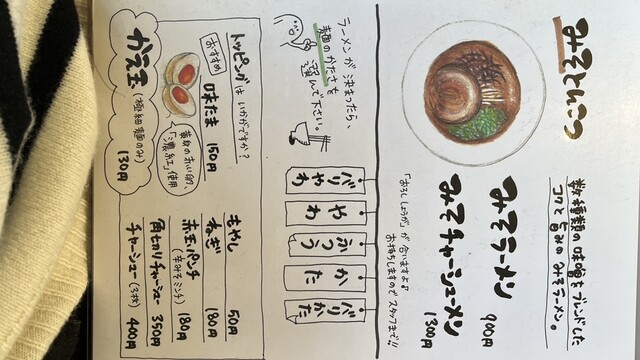 みそとんこつ
数種類の味噌をブレンドした
コクと旨みのみそラーメン。
みそラーメン 900円
みそチャーシューメン 1300円
「おろししょうが」が合いますよ♪
お持ちしますのでスタッフまで!!
ラーメンが決まったら、
麺のかたさを
選んで下さい。
バリやわ
やわ
ふつう
かた
バリかた
トッピングはいかがですか?
おすすめ
味たま 150円
黄身の赤い卵、
「濃紅」使用
かえ玉 (極細麺のみ) 130円
もやし 50円
ねぎ 180円
赤玉パンチ 180円
(辛みそミンチ)
角切りチャーシュー 350円
チャーシュー (3枚) 400円